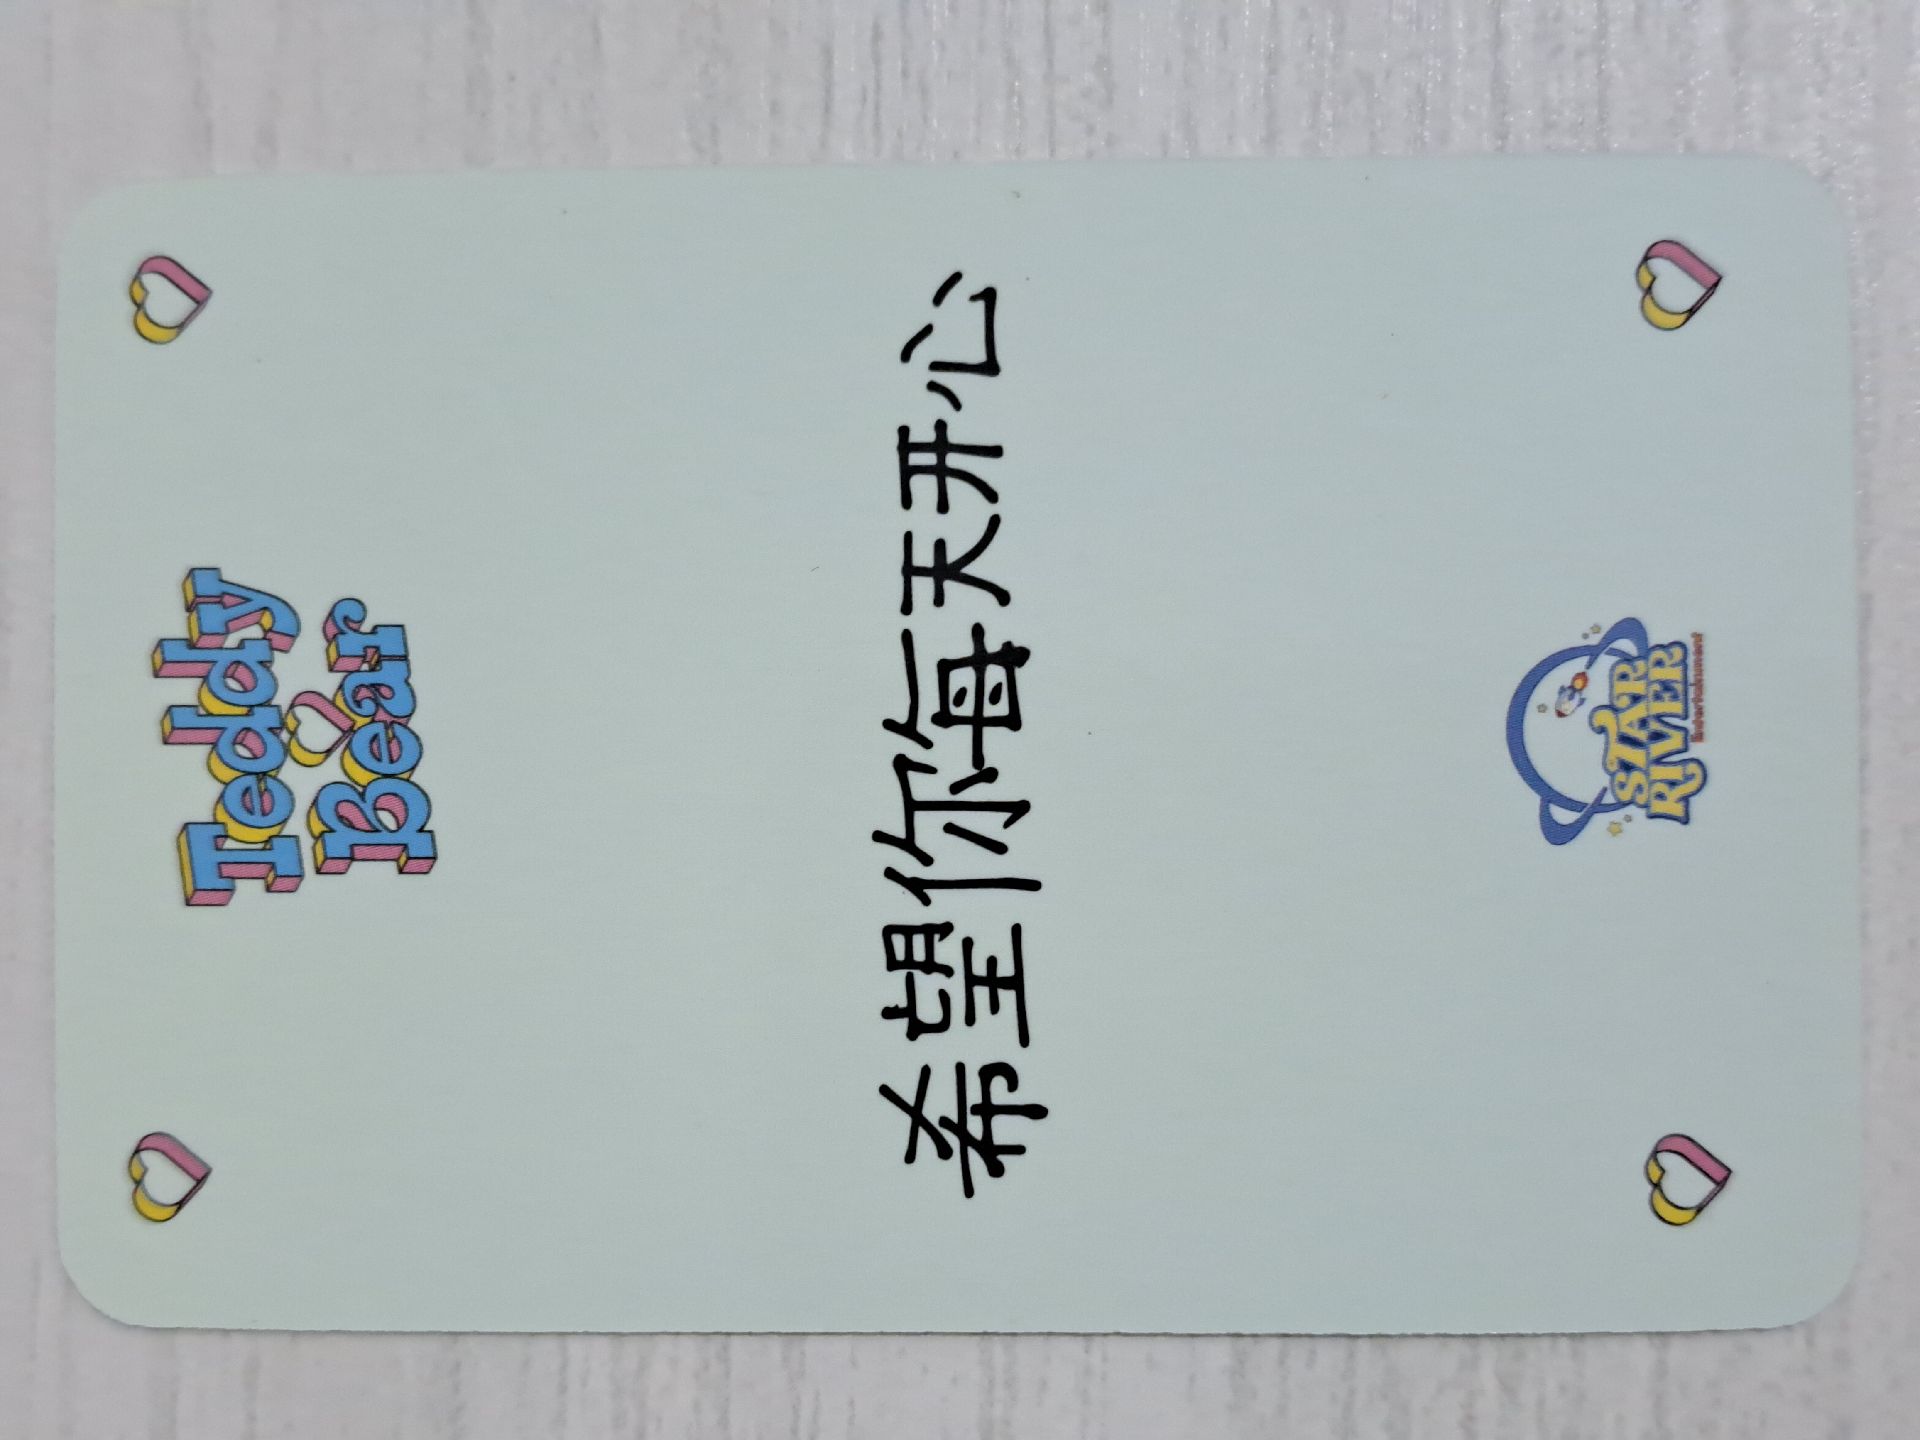 Teddy
Bear
希望你每天开心
STAR
RIVER
Entertainment